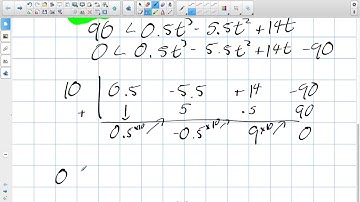 90 < 0.5t³ - 5.5t² + 14t
0 < 0.5t³ - 5.5t² + 14t - 90
10 | 0.5 -5.5 +14 -90
+ ↓ 5 .5 90
0.5 ×10 ↗ -0.5 ×10 ↗ 9 ×10 ↗ 0
0